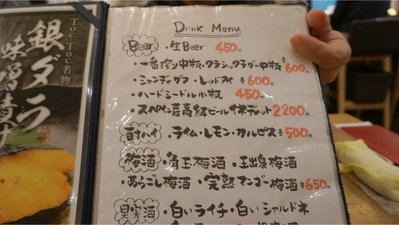 TocToc名物
銀ダラ
味噌漬け
Drink Menu
Beer・生Beer 450
・一番搾り中瓶・クラシックラガー中瓶各600
・シャンディガフ・レッドアイ 各600
・ハードミードル小瓶 450
・スペイン産高級ビールイネディット 2200
酎ハイ・ライム・レモン・カルピス各500
梅酒・角玉梅酒・玉出泉梅酒
・あらごし梅酒・完熟マンゴー梅酒各650
果実酒・白いライチ・白いシャルドネ